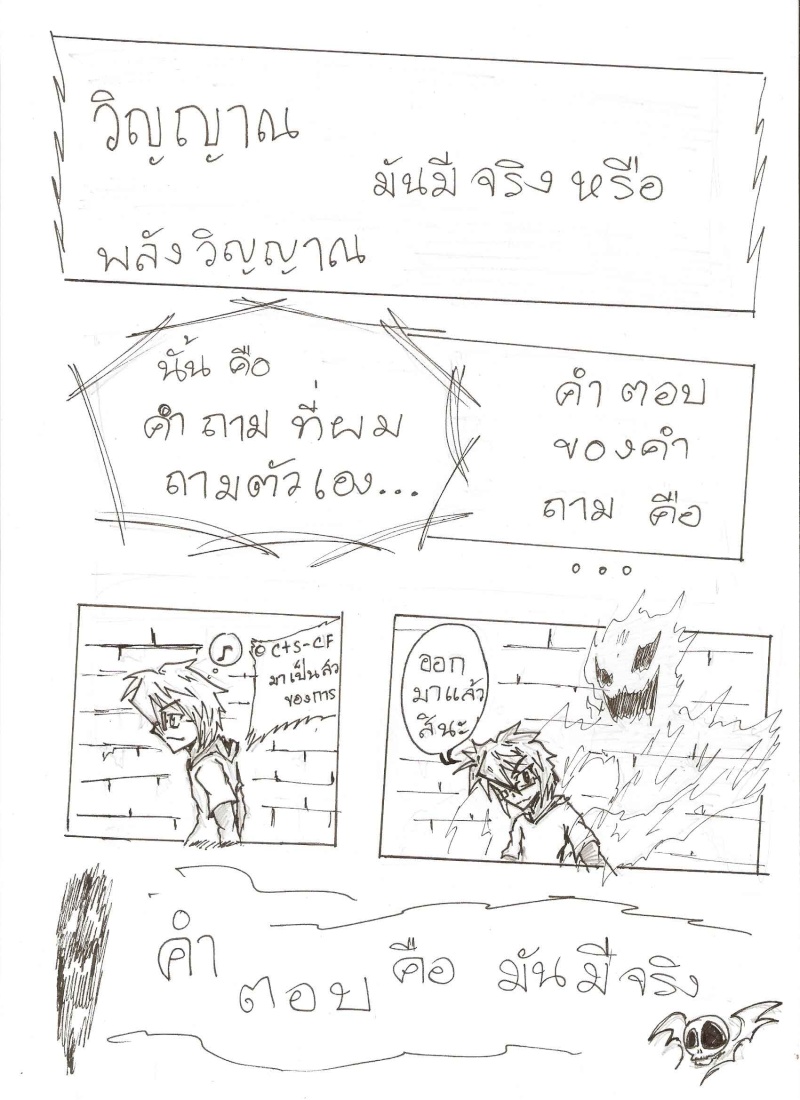 วิญญาณ
มันมี จริง หรือ
พลัง วิญญาณ
นั้น คือ
คำ ถาม ที่ผม
ถามตัวเอง...
คำ ตอบ
ของคำ
ถาม คือ
...
C+S-CF
มาเป็นตัว
ของการ
ออก
มาแล้ว
สินะ
คำ
ตอบ คือ มันมีจริง